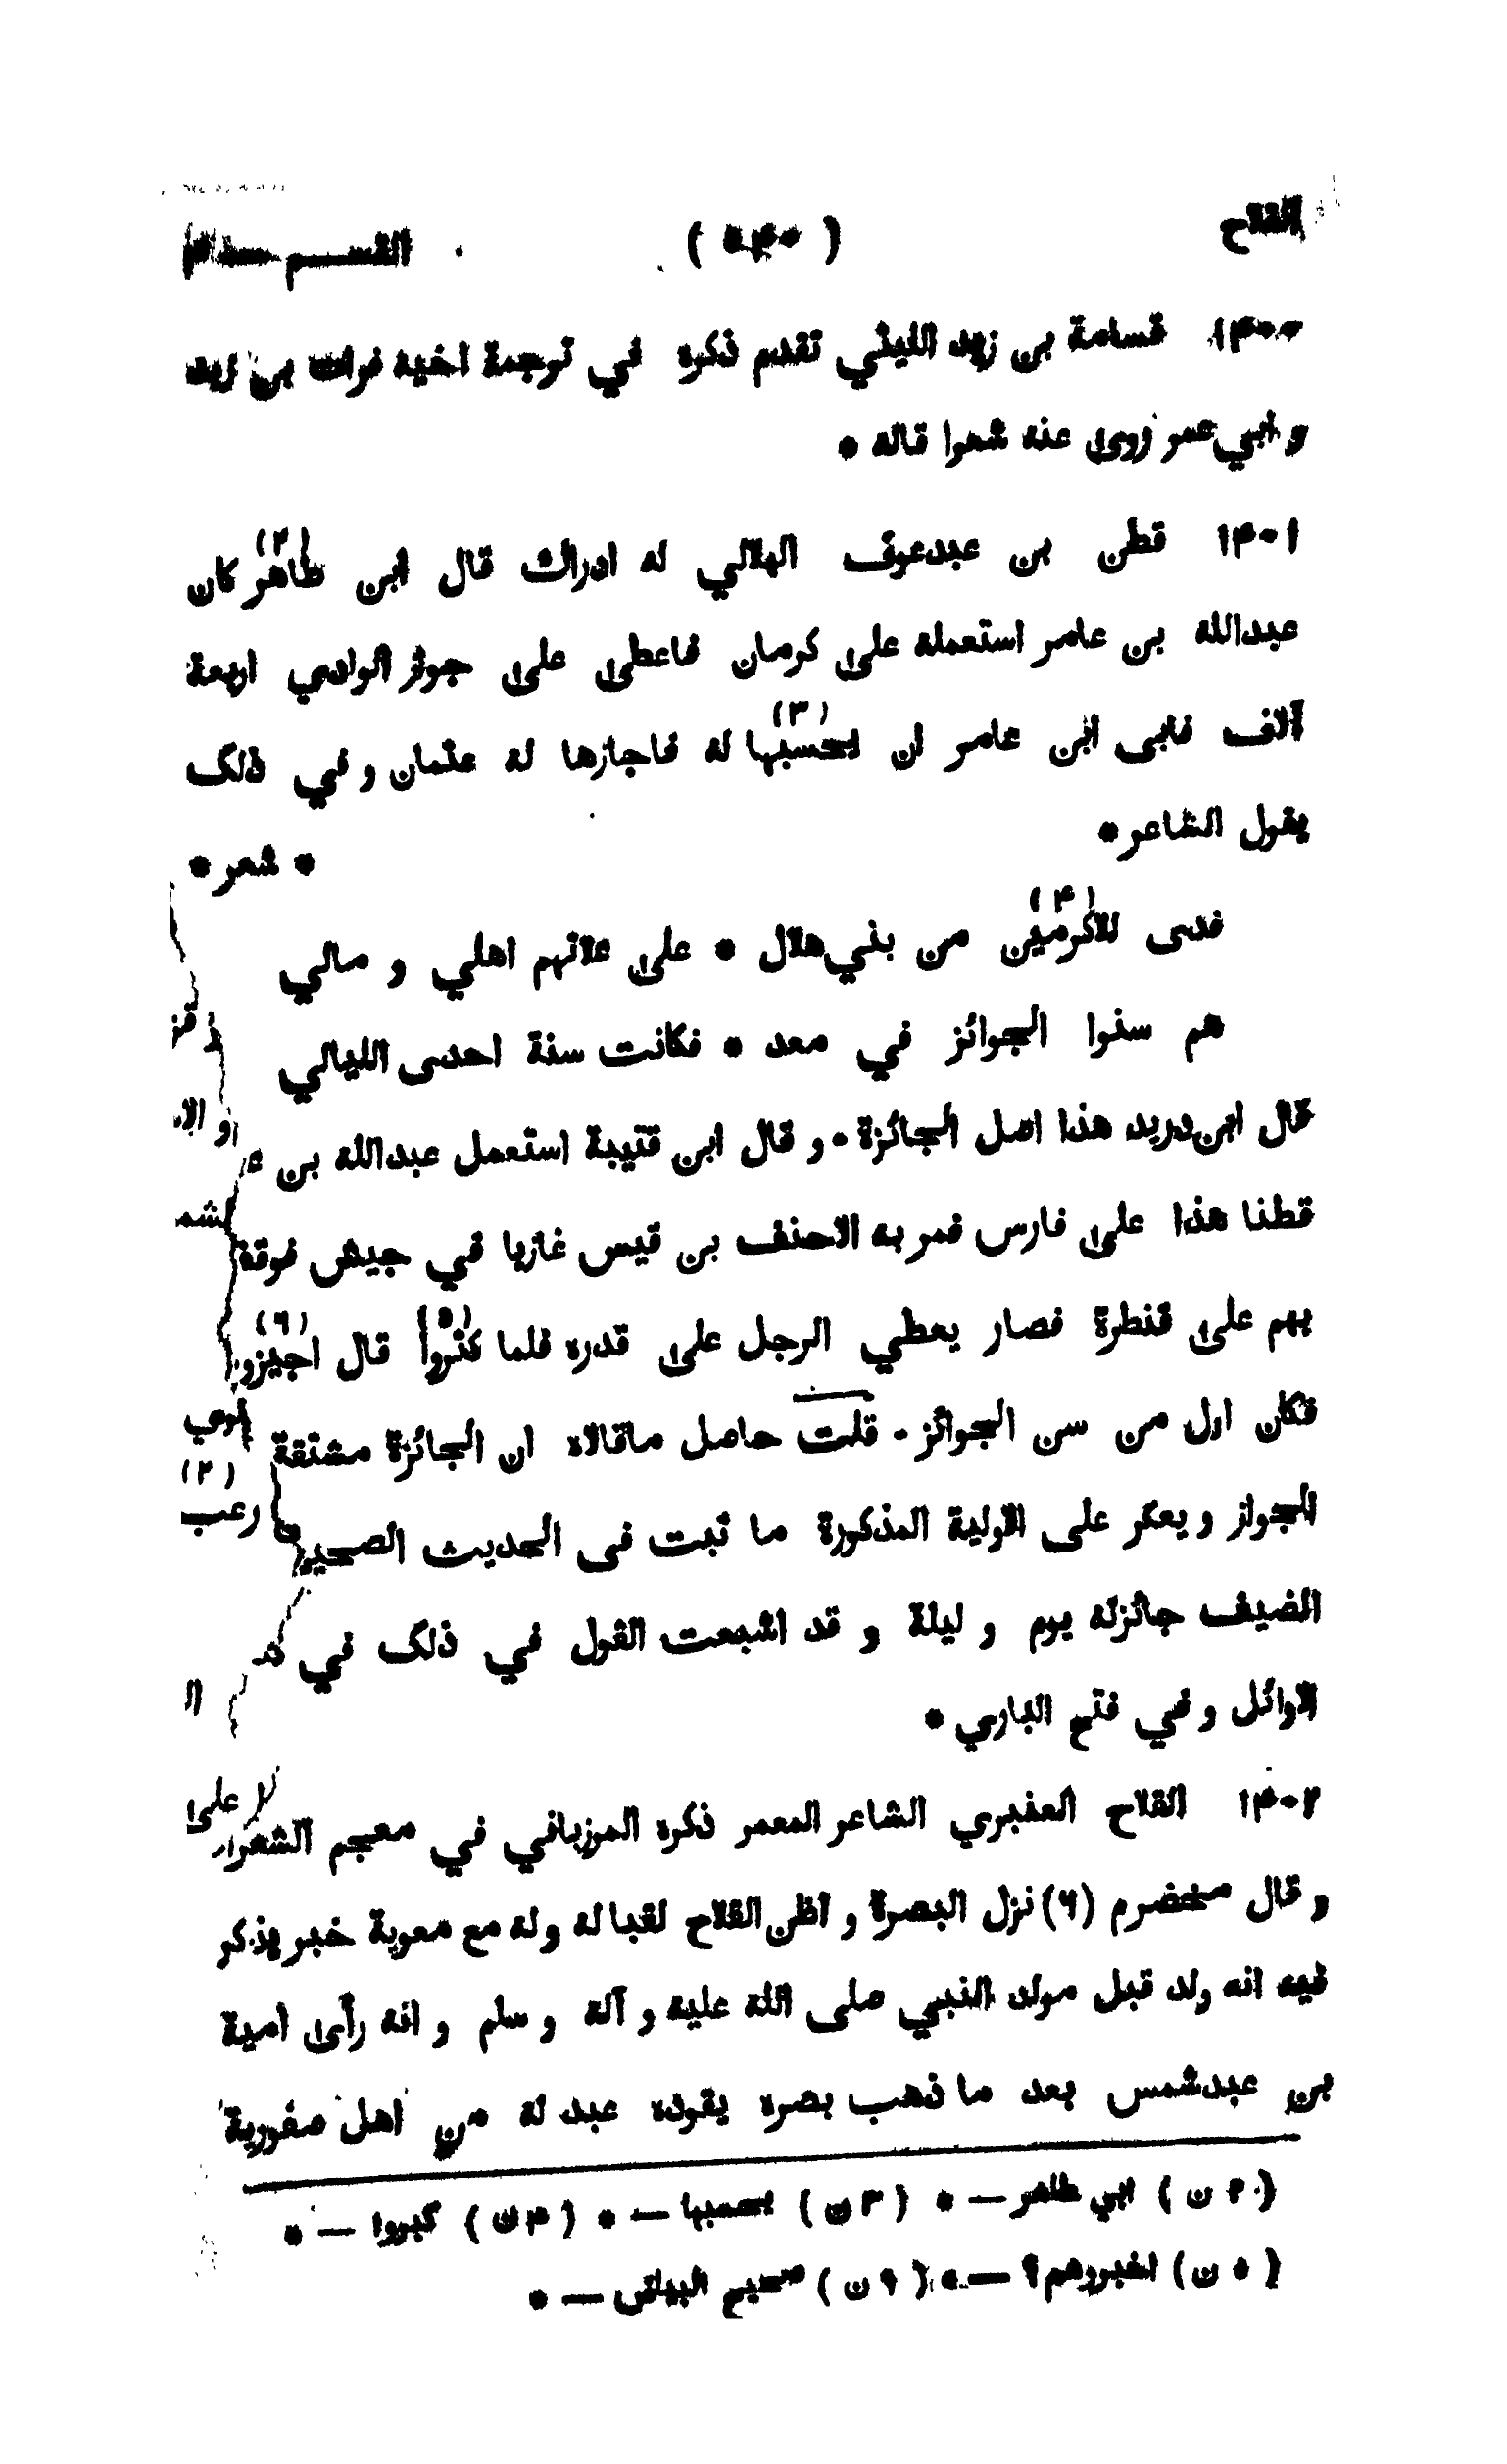 القلاح ( ٥٤٠ ) القسم
١٤٠٠ قسامة بن زيد الليثي تقدم ذكره في ترجمة اخيه فرات بن زيد
و ابي عمر روى عنه شعرا قاله *
١٤٠١ قطن بن عبدعوف الهلالي له ادراك قال ابن طاهر (٢) كان
عبدالله بن عامر استعمله على كرمان فاعطى على جوز الوادي اربعة
آلاف فابى ابن عامر ان يحسبها (٣) له فاجازها له عثمان و في ذلك
يقول الشاعر * * شعر *
فدى للاكرمين (٤) من بني هلال * على علاتهم اهلي و مالي
هم سنوا الجوائز في معد * فكانت سنة احدى الليالي
قال ابن دريد هذا اصل الجائزة - و قال ابن قتيبة استعمل عبدالله بن
قطنا هذا على فارس فمر به الاحنف بن قيس غازيا في جيش فوقف
بهم على قنطرة فصار يعطي الرجل على قدره فلما كثروا (٥) قال اجيزو (٦)
فكان اول من سن الجوائز - قلت حاصل ماقالاه ان الجائزة مشتقة
الجواز و يعكر على الاولية المذكورة ما ثبت فى الحديث الصحيح
الضيف جائزته يوم و ليلة و قد اشبعت القول في ذلك في
الاوائل و في فتح الباري *
١٤٠٢ القلاح العنبري الشاعر المعمر ذكره المرزباني في معجم الشعرا
و قال مخضرم (٦) نزل البصرة و اظن القلاح لقبا له وله مع معوية خبر يذكر
فيه انه ولد قبل مولد النبي صلى الله عليه و آله و سلم و انه رأى امية
بن عبدشمس بعد ما ذهب بصره يقوده عبد له من اهل صفورية
( ٢ ن ) ابي طاهر — * ( ٣ ن ) يحصبها — * ( ٤ ن ) كبروا — *
( ٥ ن ) اخبروهم ؟ — * ( ٦ ن ) صحيح البياض — *